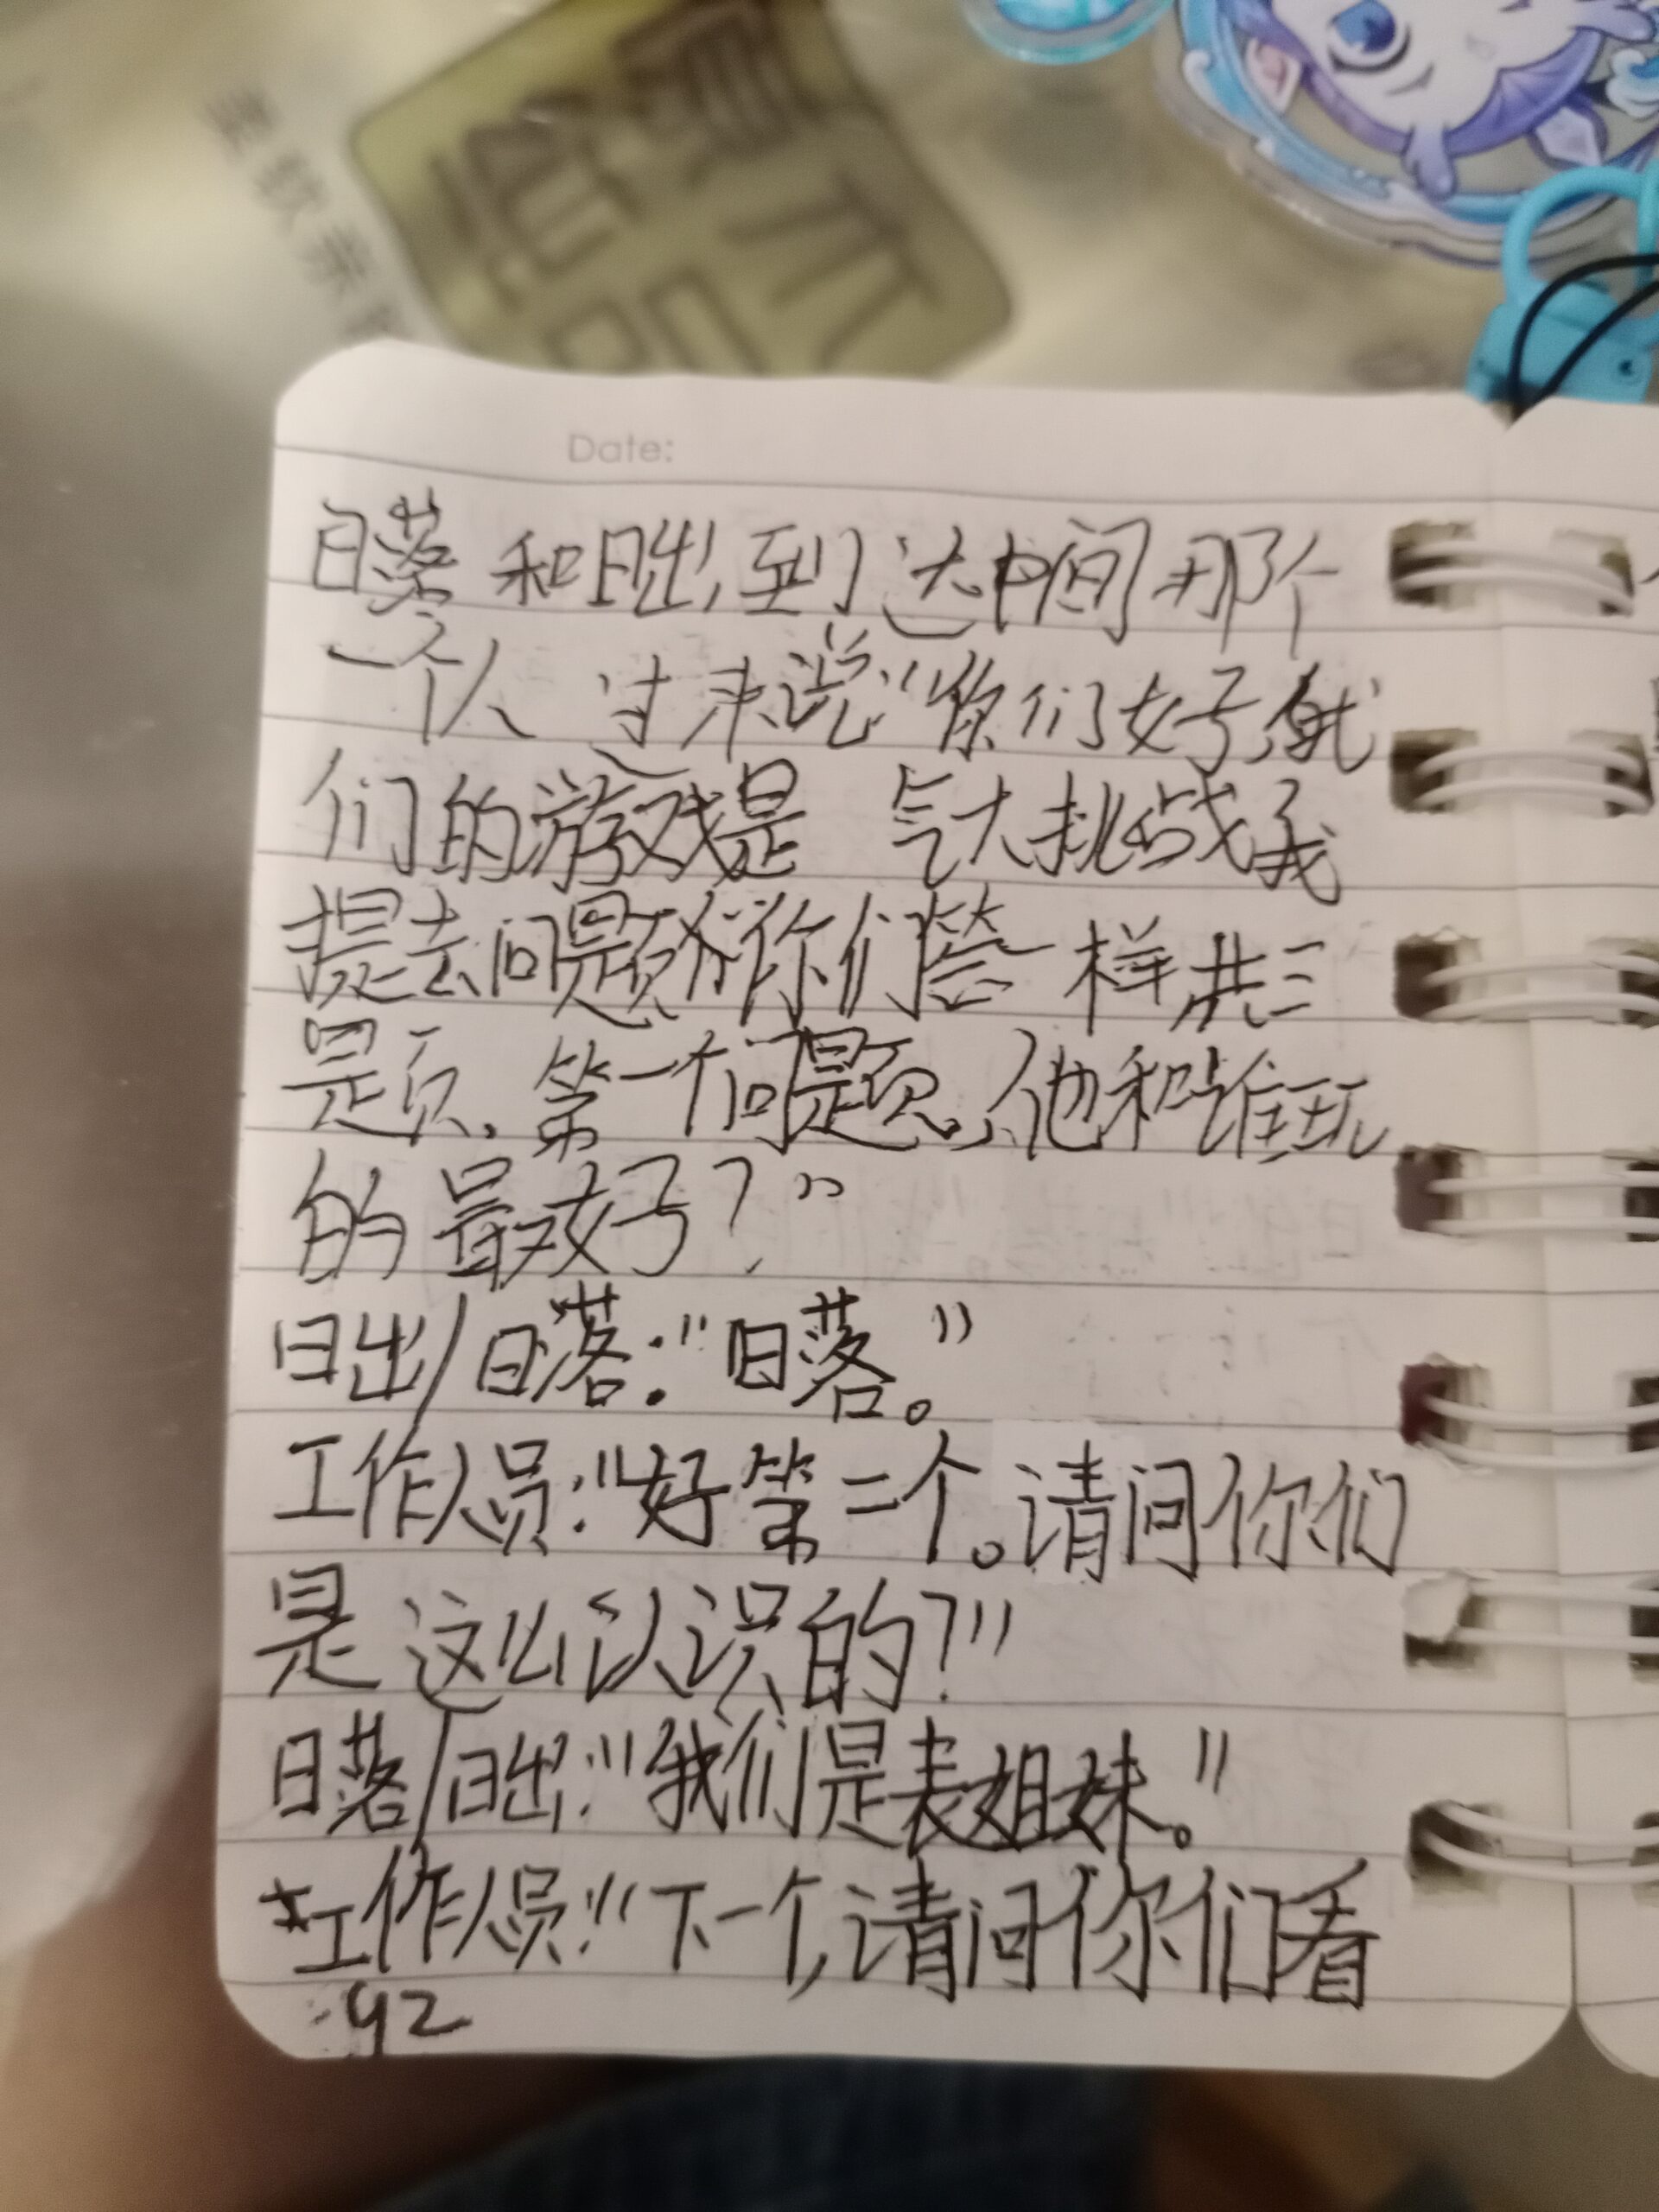 Date:
日落和日出,到达中间那个
一个人过来说:"你们好,我
们的游戏是 气大挑战我
提去问题你们答一样共三
是页.第一个问题,他和谁玩
的最好?"
日出/日落:"日落。"
工作人员:"好第二个。请问你们
是这么认识的?"
日落/日出:"我们是表姐妹。"
工作人员:"下一个,请问你们看
92